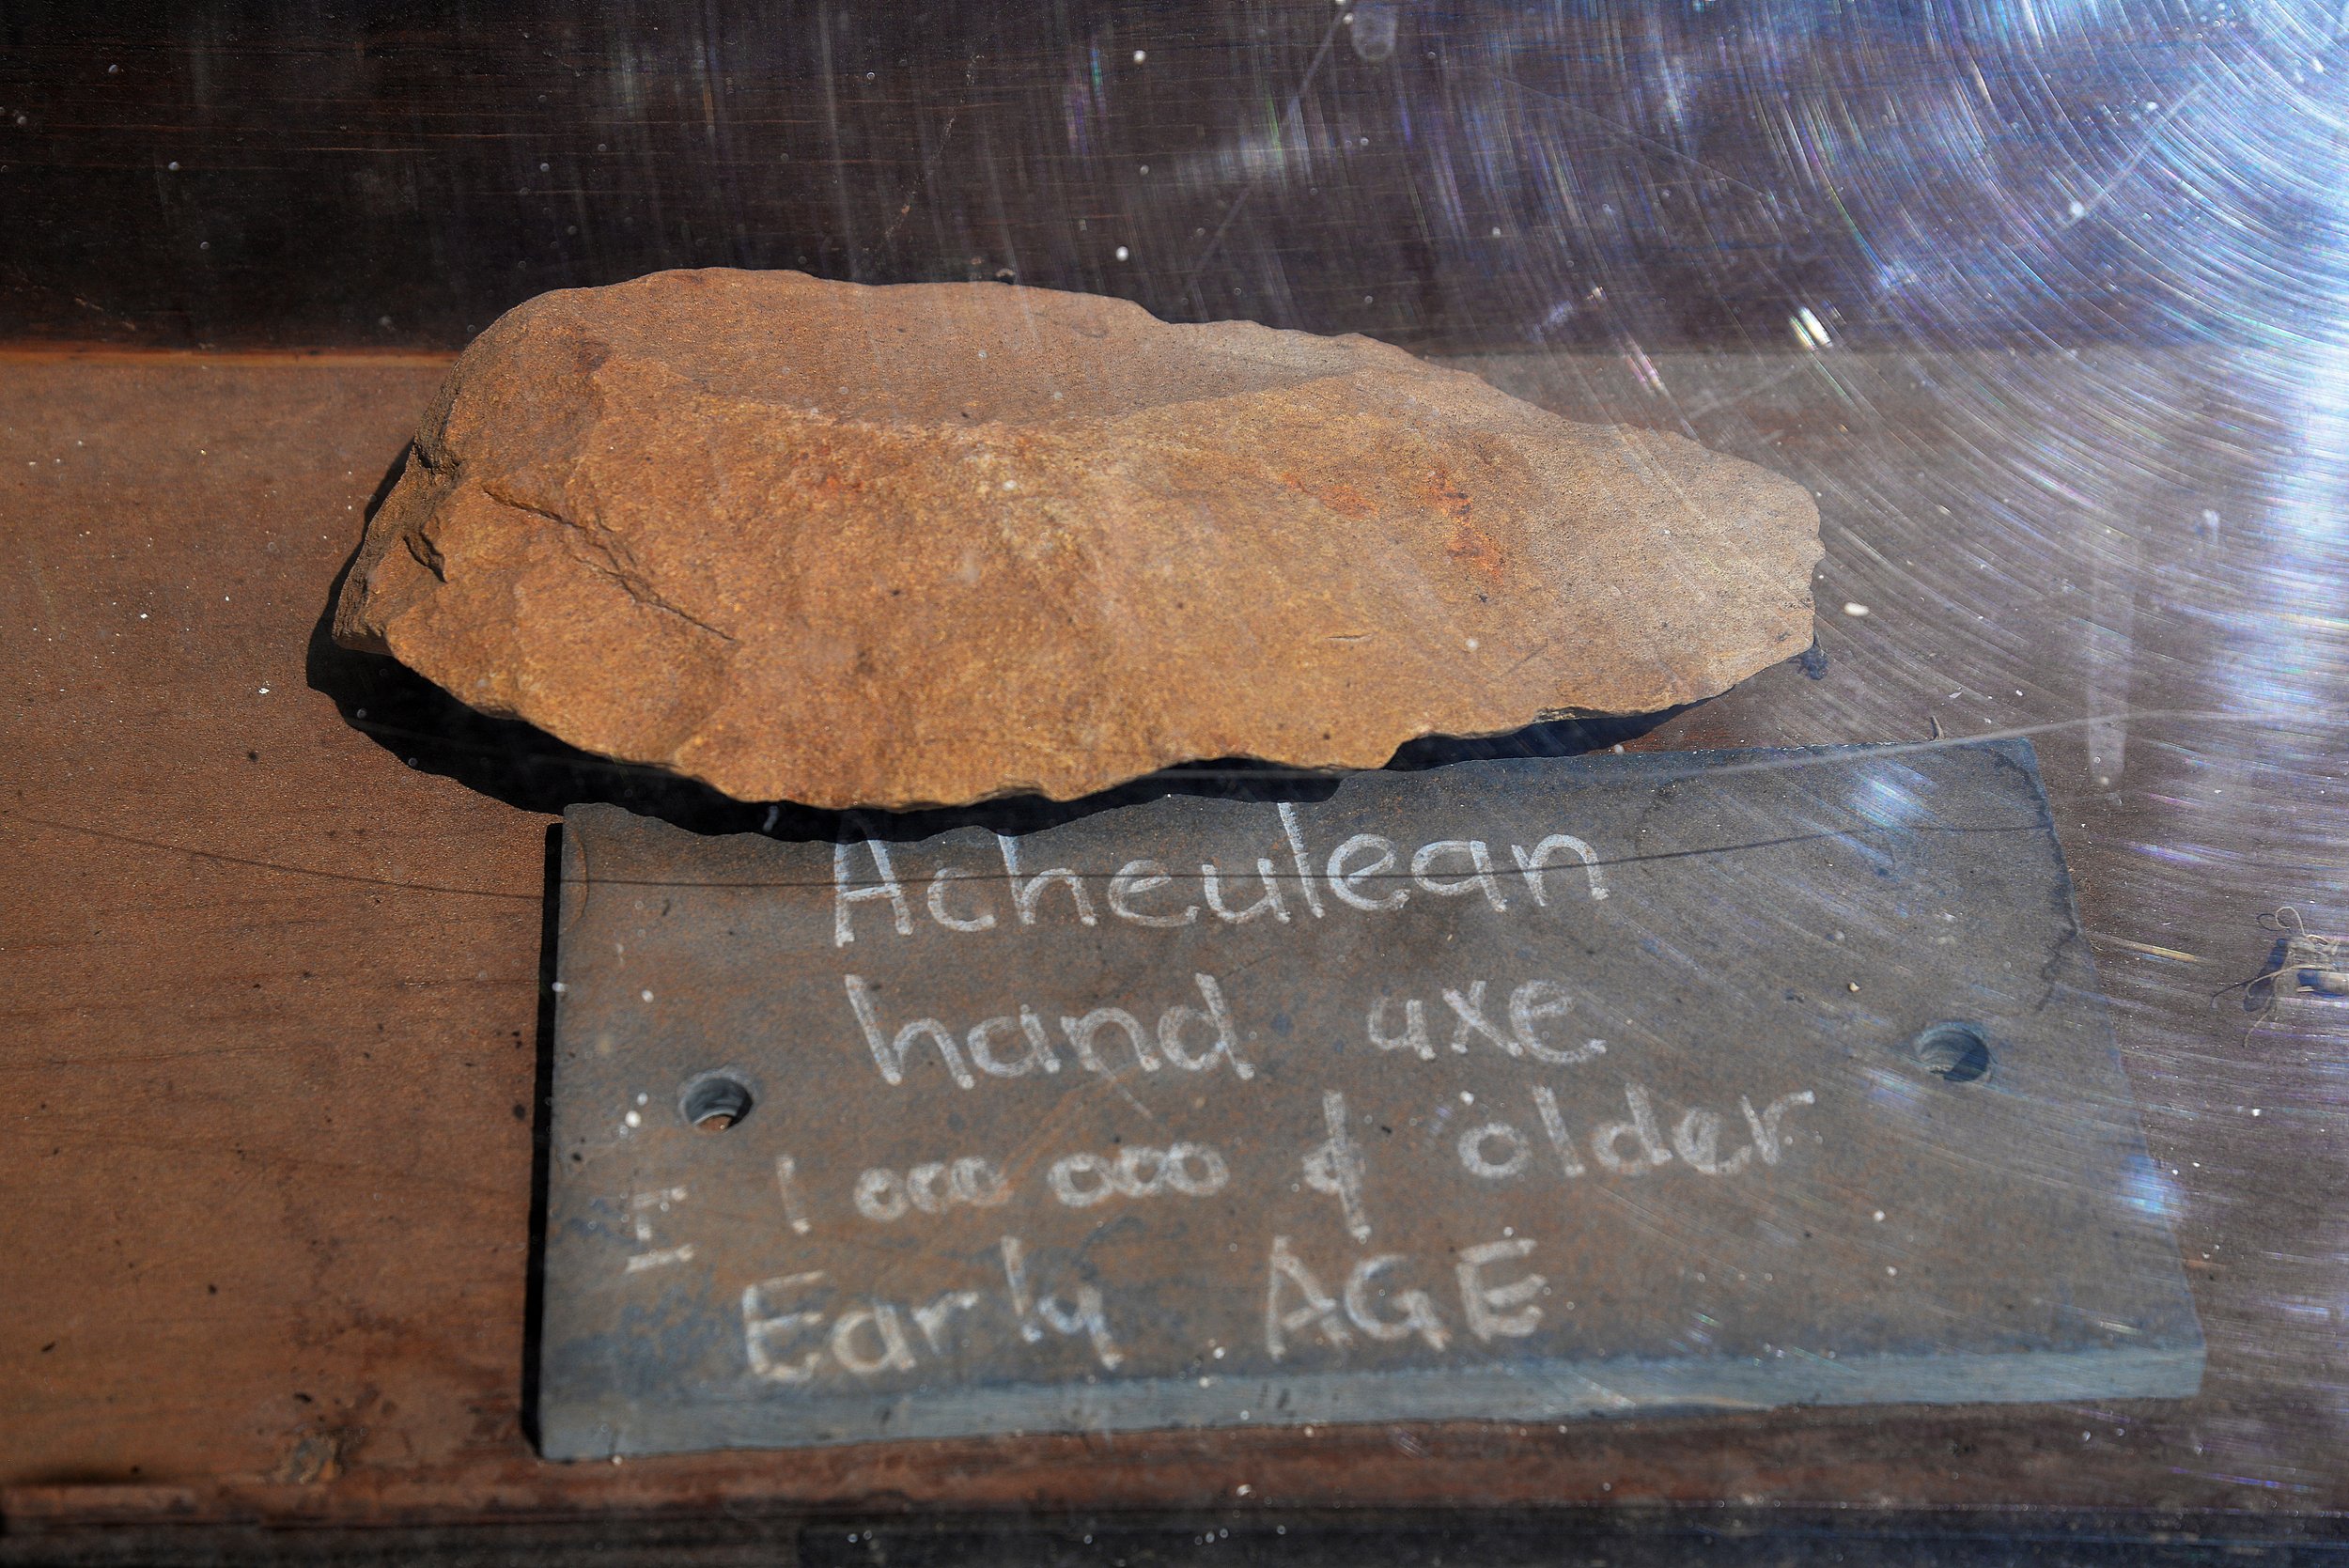 Acheulean
hand axe
± 1 000 000 & older
Early AGE